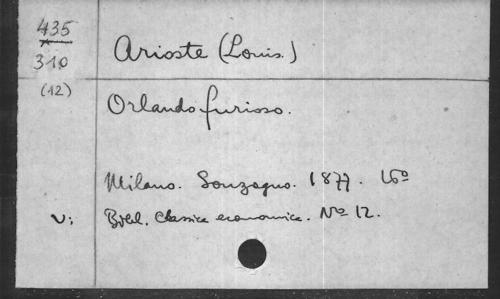 435
310
(12)
Arioste (Louis.)
Orlando furioso.
Milano. Sonzogno. 1877. 16º
V: Bibl. Classica economica. Nº 12.